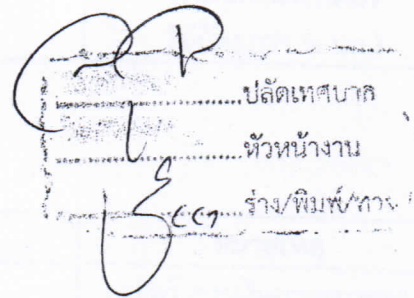 ปลัดเทศบาล
หัวหน้างาน
ร่าง/พิมพ์/ทาน